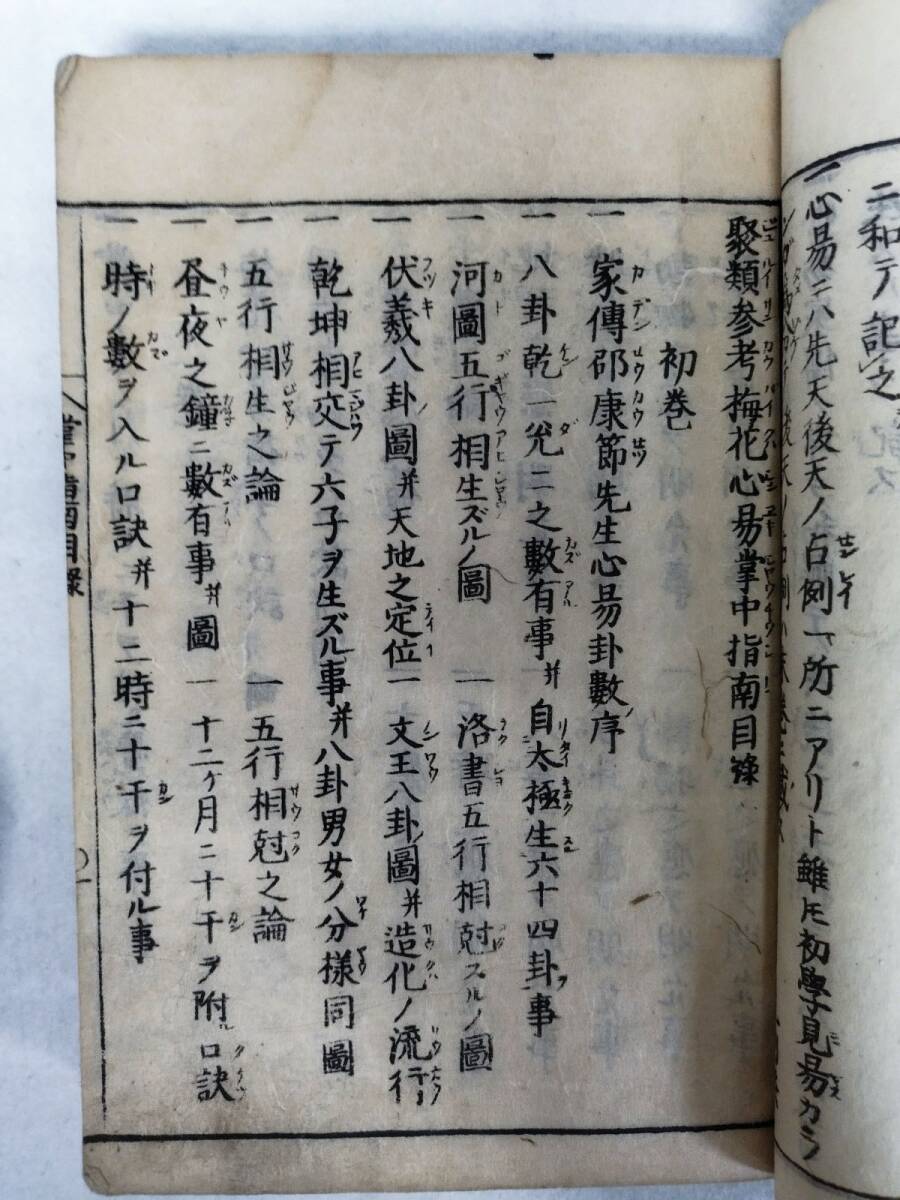 ニ和テ記之
一心易ニハ先天後天ノ占例一所ニアリト雖モ初學見易カラ
聚類参考梅花心易掌中指南目録
初巻
一 家傳邵康節先生心易卦數序
一 八卦乾一兌二之數有事并自太極生六十四卦事
一 河圖五行相生ズルノ圖 一 洛書五行相尅スルノ圖
一 伏羲八卦ノ圖并天地之定位 一 文王八卦ノ圖并造化ノ流行
一 乾坤相交テ六子ヲ生ズル事并八卦男女ノ分様同圖
一 五行相生之論 一 五行相尅之論
一 昼夜之鐘ニ數有事并圖 一 十二ヶ月ニ十干ヲ附ル口訣
一 時ノ數ヲ入ル口訣并十二時ニ十干ヲ付ル事
目録